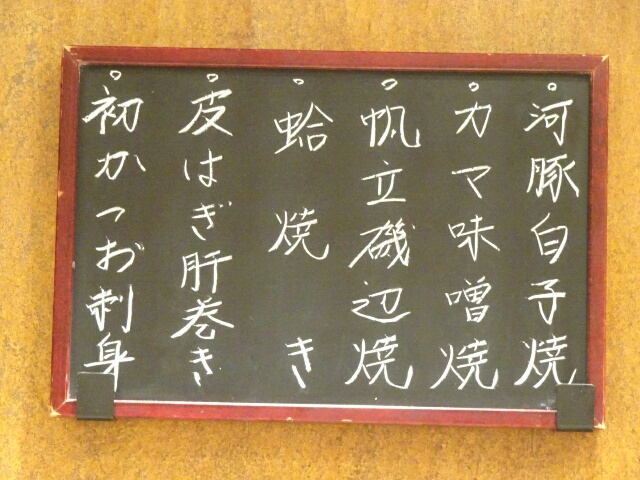 。河豚白子焼
。カマ味噌焼
。帆立磯辺焼
。蛤焼き
。皮はぎ肝巻き
。初かつお刺身